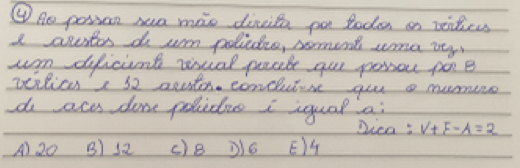 ④ Ao passar sua mão direita por todos os vértices
e arestas de um poliedro, somente uma vez,
um deficiente visual percebe que passou por 8
vértices e 12 arestas. conclui-se que o numero
de aces desse poliedro é igual a:
Dica: V+F-A=2
A) 20 B) 12 C) 8 D) 6 E) 4